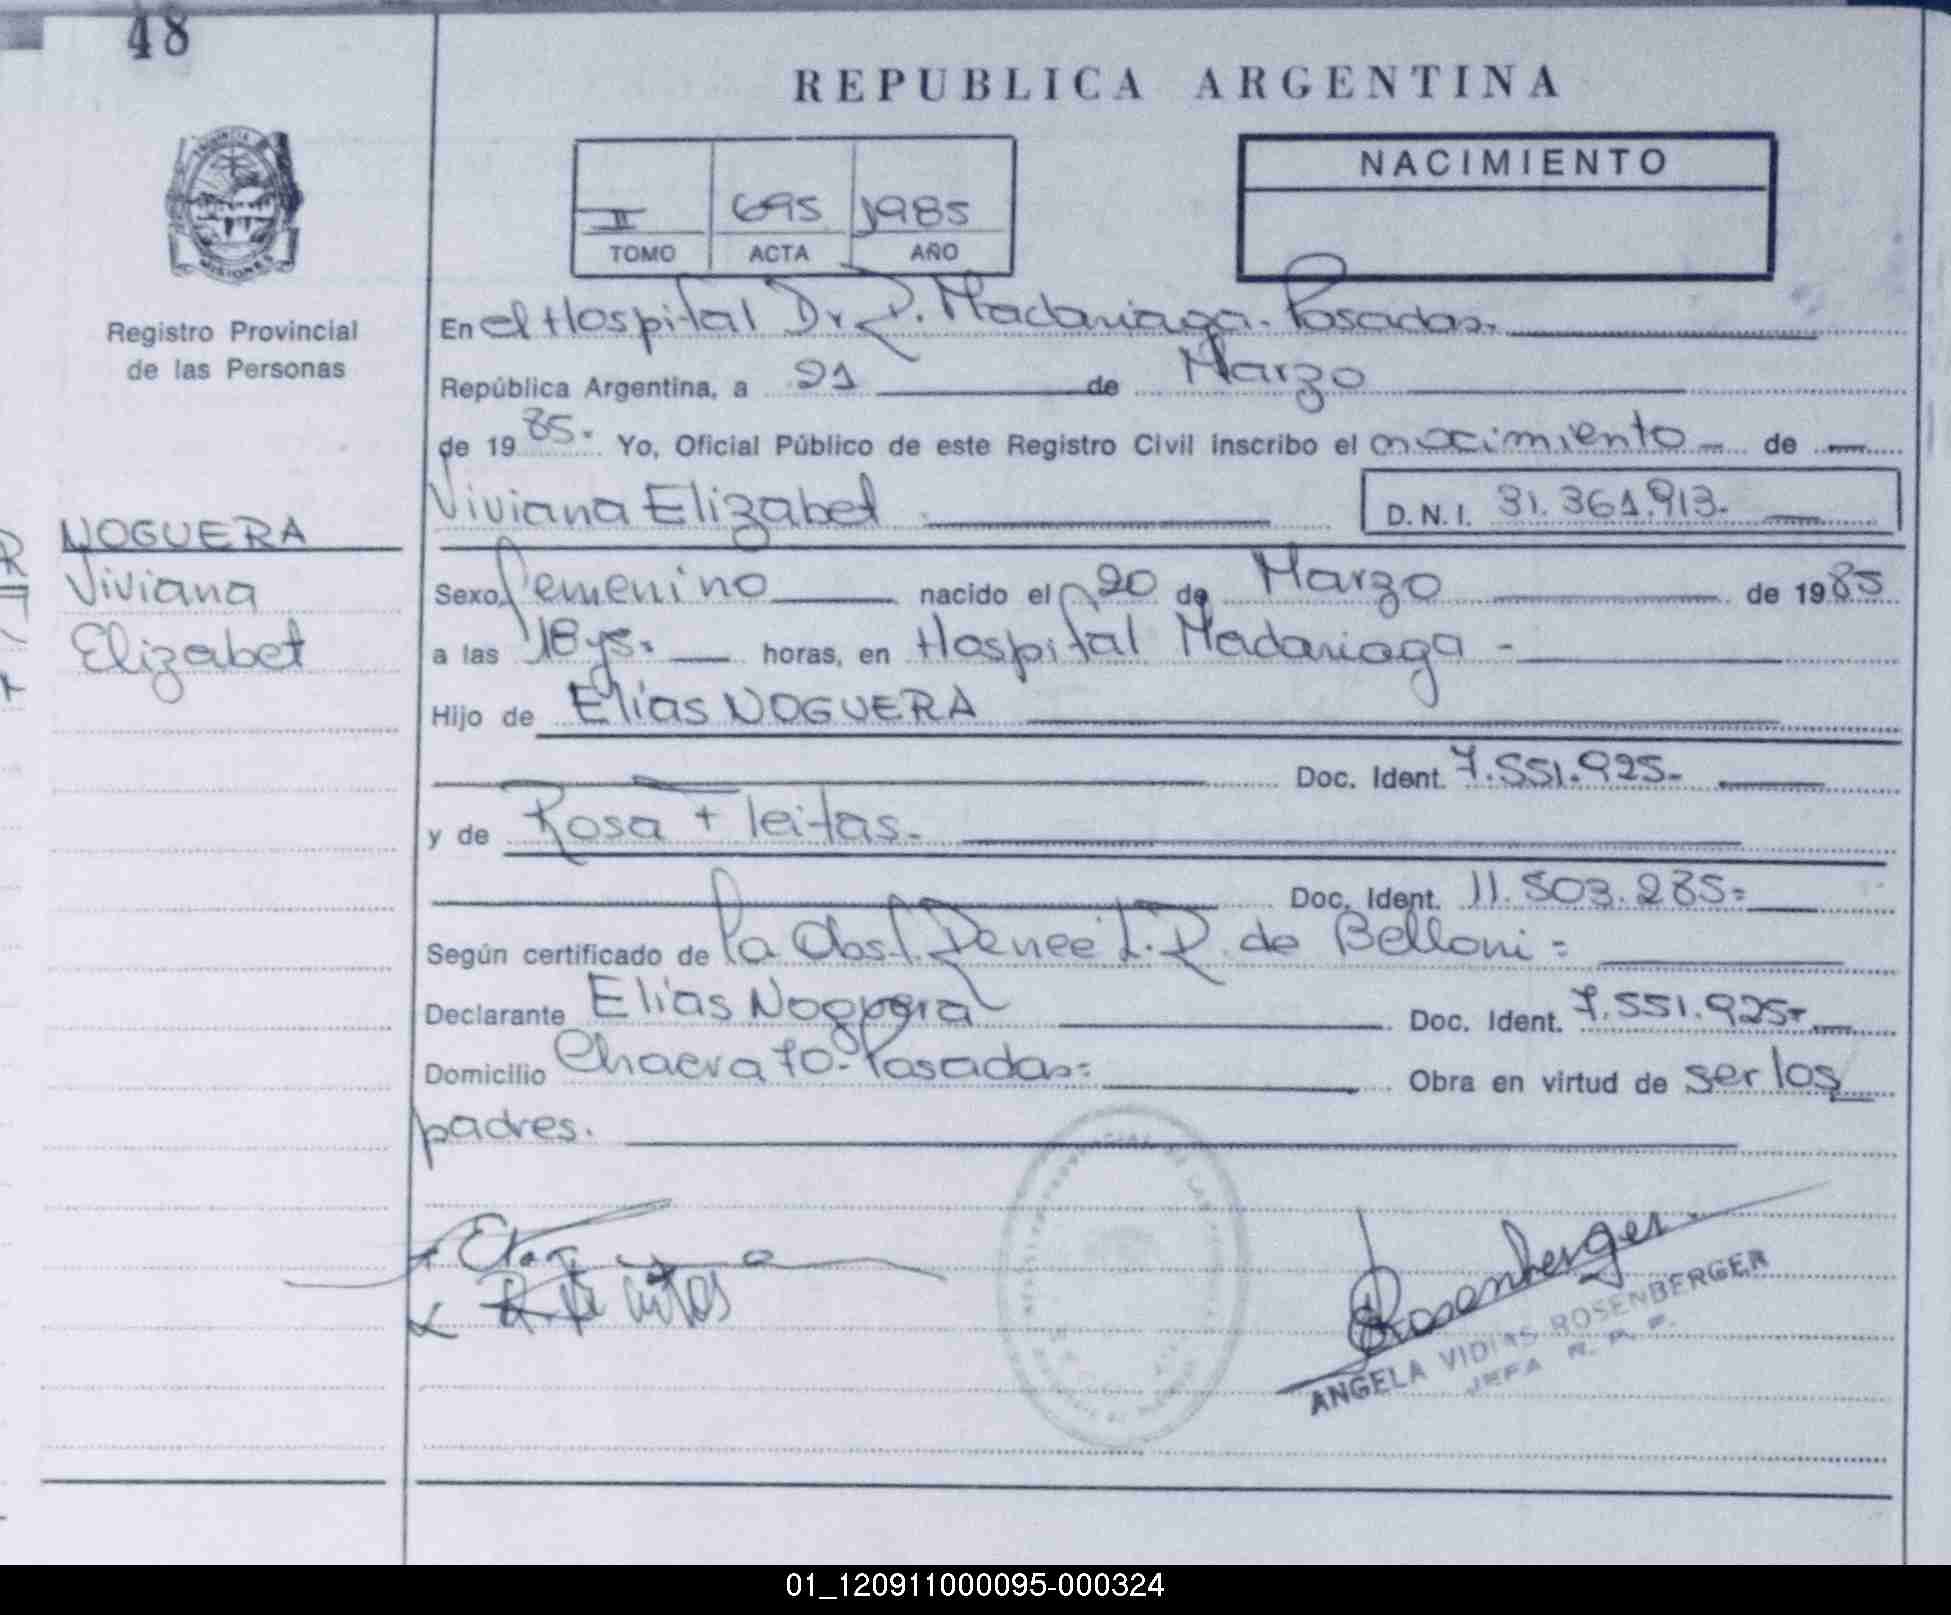 48
REPUBLICA ARGENTINA
PROVINCIA
MISIONES
Registro Provincial
de las Personas
II 695 1985
TOMO ACTA AÑO
NACIMIENTO
En el Hospital Dr R. Madariaga. Posadas.
República Argentina, a 21 de Marzo
de 1985. Yo, Oficial Público de este Registro Civil inscribo el nacimiento de
Viviana Elizabet D.N.I. 31.361.913.
NOGUERA
Viviana
Elizabet
Sexo femenino nacido el 20 de Marzo de 1985
a las 18 horas, en Hospital Madariaga
Hijo de Elias NOGUERA
Doc. Ident. 7.551.925.
y de Rosa Fleitas.
Doc. Ident. 11.503.285
Según certificado de la Obst. Renee L. R. de Belloni
Declarante Elias Noguera Doc. Ident. 7.551.925
Domicilio Chacra 70 - Posadas Obra en virtud de ser los
padres.
Rosenberger
ANGELA VIDIAS ROSENBERGER
JEFA R. P. P.
01_120911000095-000324